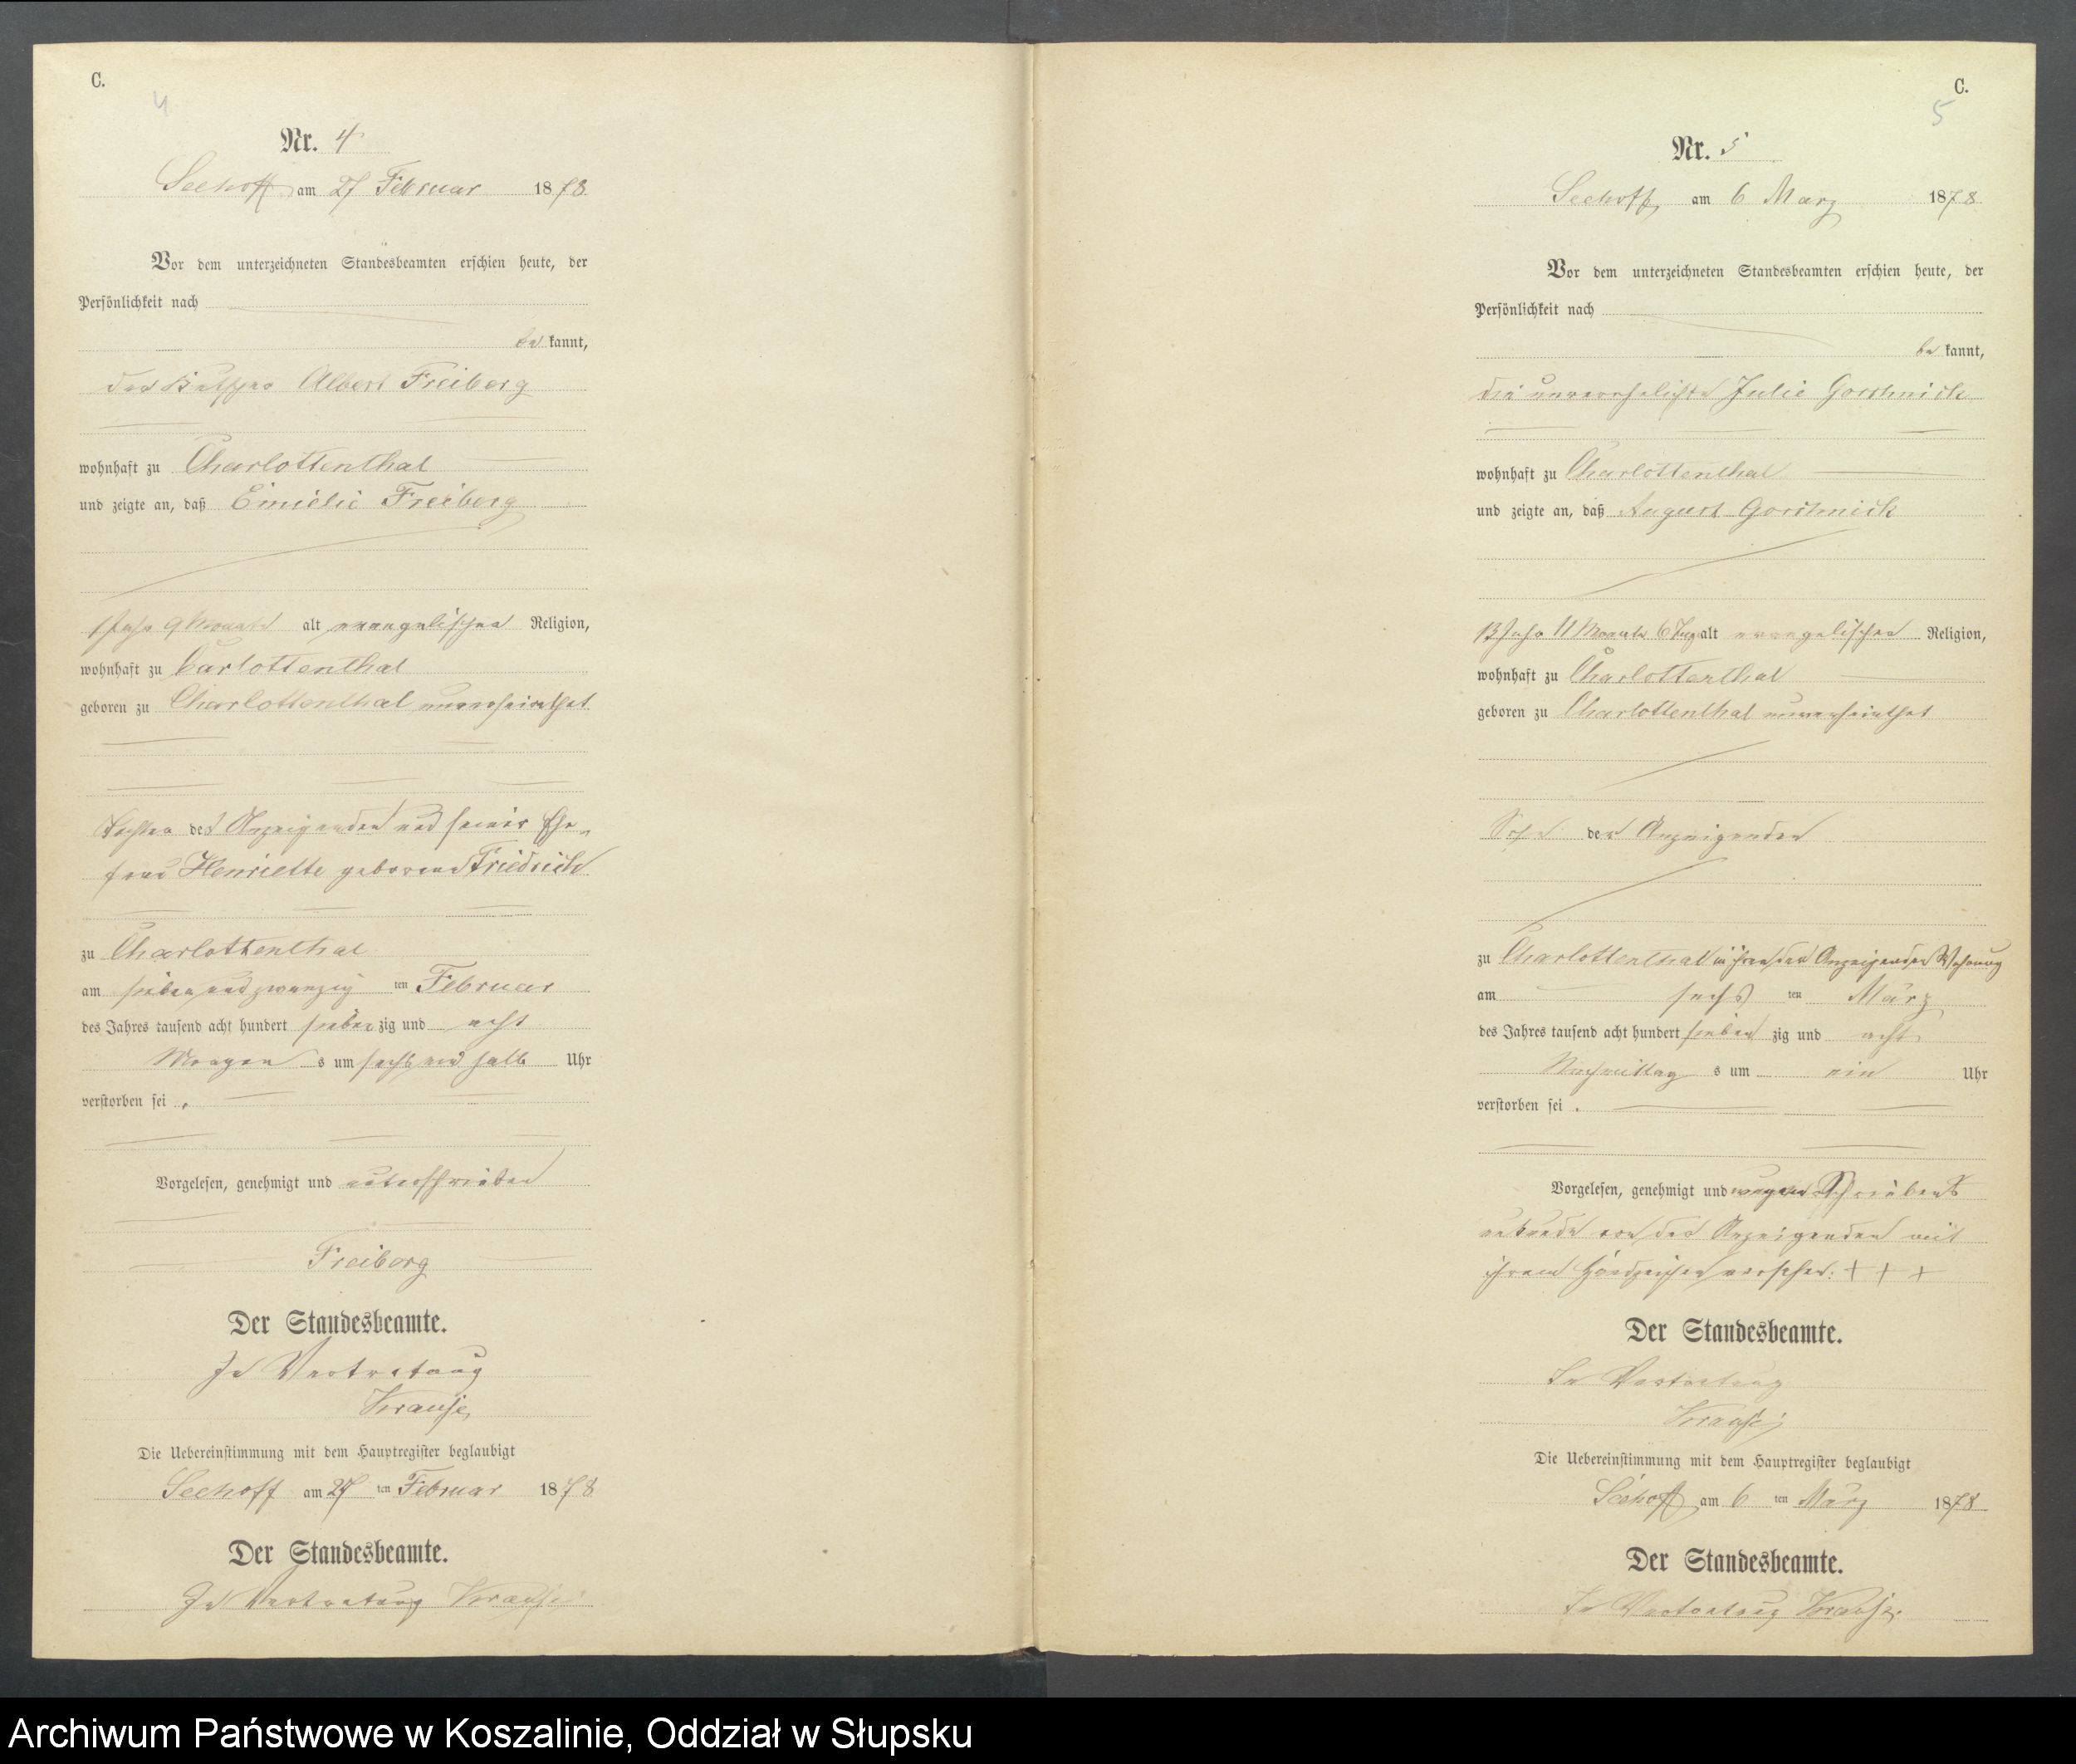 C.
4
Nr. 4
Seehoff am 27 Februar 1878
Vor dem unterzeichneten Standesbeamten erschien heute, der
Persönlichkeit nach
be kannt,
der Albert Freiberg
wohnhaft zu Charlottenthal
und zeigte an, daß Emielie Freiberg
1 Jahr 9 Monate alt evangelischer Religion,
wohnhaft zu Carlottenthal
geboren zu Charlottenthal unverheirathet
Tochter des Anzeigenden und seiner Ehe-
frau Henriette geborene Friedrich
zu Charlottenthal
am sieben und zwanzig ten Februar
des Jahres tausend acht hundert sieben zig und acht
Morgen s um sechs und halb Uhr
verstorben sei .
Vorgelesen, genehmigt und unterschrieben
Freiberg
Der Standesbeamte.
In Vertretung
Krause
Die Uebereinstimmung mit dem Hauptregister beglaubigt
Seehoff am 27 ten Februar 1878
Der Standesbeamte.
In Vertretung Krause
C.
5
Nr. 5
Seehoff am 6 März 1878
Vor dem unterzeichneten Standesbeamten erschien heute, der
Persönlichkeit nach
be kannt,
die unverehelichte Julie Gorstnick
wohnhaft zu Charlottenthal
und zeigte an, daß August Gorstnick
13 Jahr 11 Monate 6 Tag alt evangelischer Religion,
wohnhaft zu Charlottenthal
geboren zu Charlottenthal unverheirathet
Sohn der Anzeigenden
zu Charlottenthal in der Anzeigenden Wohnung
am sechs ten März
des Jahres tausend acht hundert sieben zig und acht
Nachmittag s um ein Uhr
verstorben sei .
Vorgelesen, genehmigt und wegen Schreibens
unkunde von der Anzeigenden mit
ihrem Handzeichen versehen: + + +
Der Standesbeamte.
In Vertretung
Krause
Die Uebereinstimmung mit dem Hauptregister beglaubigt
Seehoff am 6 ten März 1878
Der Standesbeamte.
In Vertretung Krause
Archiwum Państwowe w Koszalinie, Oddział w Słupsku